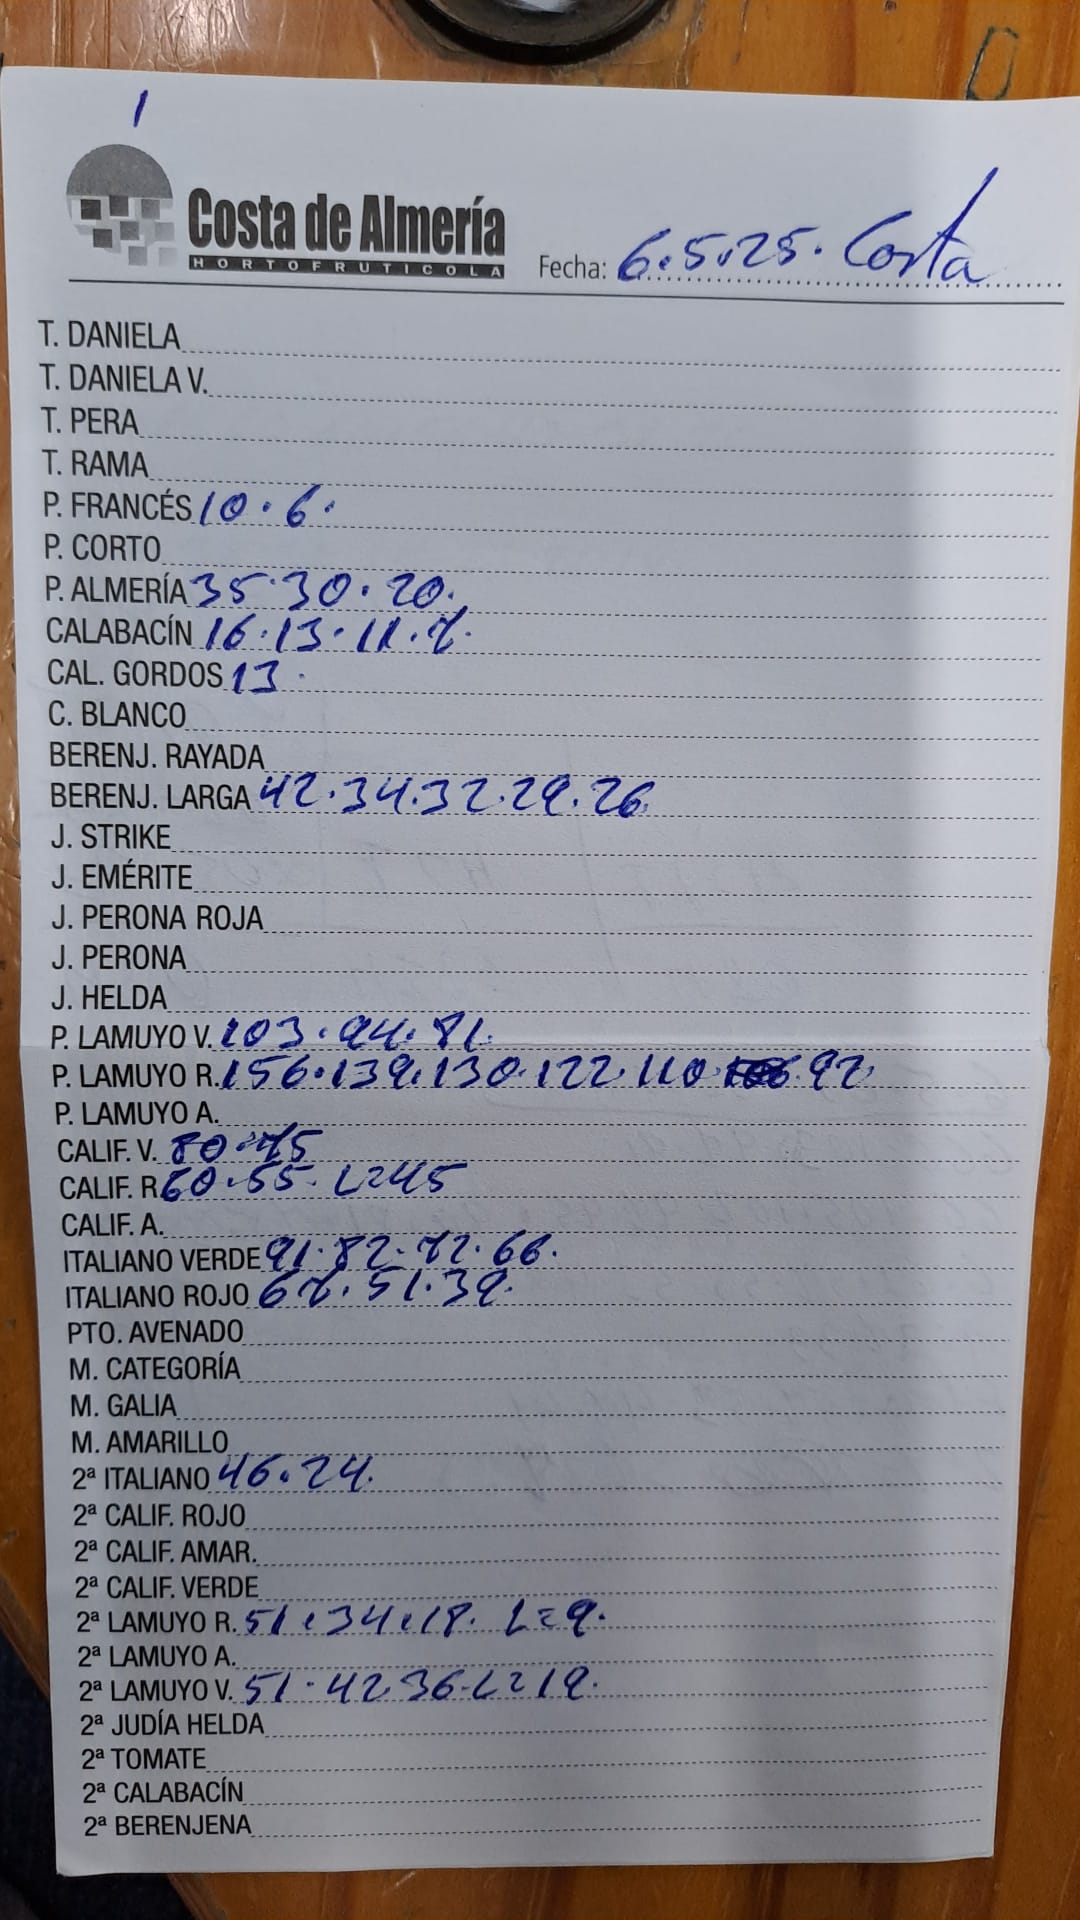 1
Costa de Almería
HORTOFRUTICOLA
Fecha: 6.5.25. Costa
T. DANIELA
T. DANIELA V.
T. PERA
T. RAMA
P. FRANCÉS 10.6.
P. CORTO
P. ALMERÍA 35.30.20.
CALABACÍN 16.13.11.7.
CAL. GORDOS 13.
C. BLANCO
BERENJ. RAYADA
BERENJ. LARGA 42.34.32.29.26.
J. STRIKE
J. EMÉRITE
J. PERONA ROJA
J. PERONA
J. HELDA
P. LAMUYO V. 103.94.81.
P. LAMUYO R. 156.139.130.122.110.92.
P. LAMUYO A.
CALIF. V. 80.75
CALIF. R 60.55. L=45
CALIF. A.
ITALIANO VERDE 91.82.72.66.
ITALIANO ROJO 67.51.39.
PTO. AVENADO
M. CATEGORÍA
M. GALIA
M. AMARILLO
2ª ITALIANO 46.24.
2ª CALIF. ROJO
2ª CALIF. AMAR.
2ª CALIF. VERDE
2ª LAMUYO R. 51.34.18. L=9.
2ª LAMUYO A.
2ª LAMUYO V. 51.42.36.L=19.
2ª JUDÍA HELDA
2ª TOMATE
2ª CALABACÍN
2ª BERENJENA